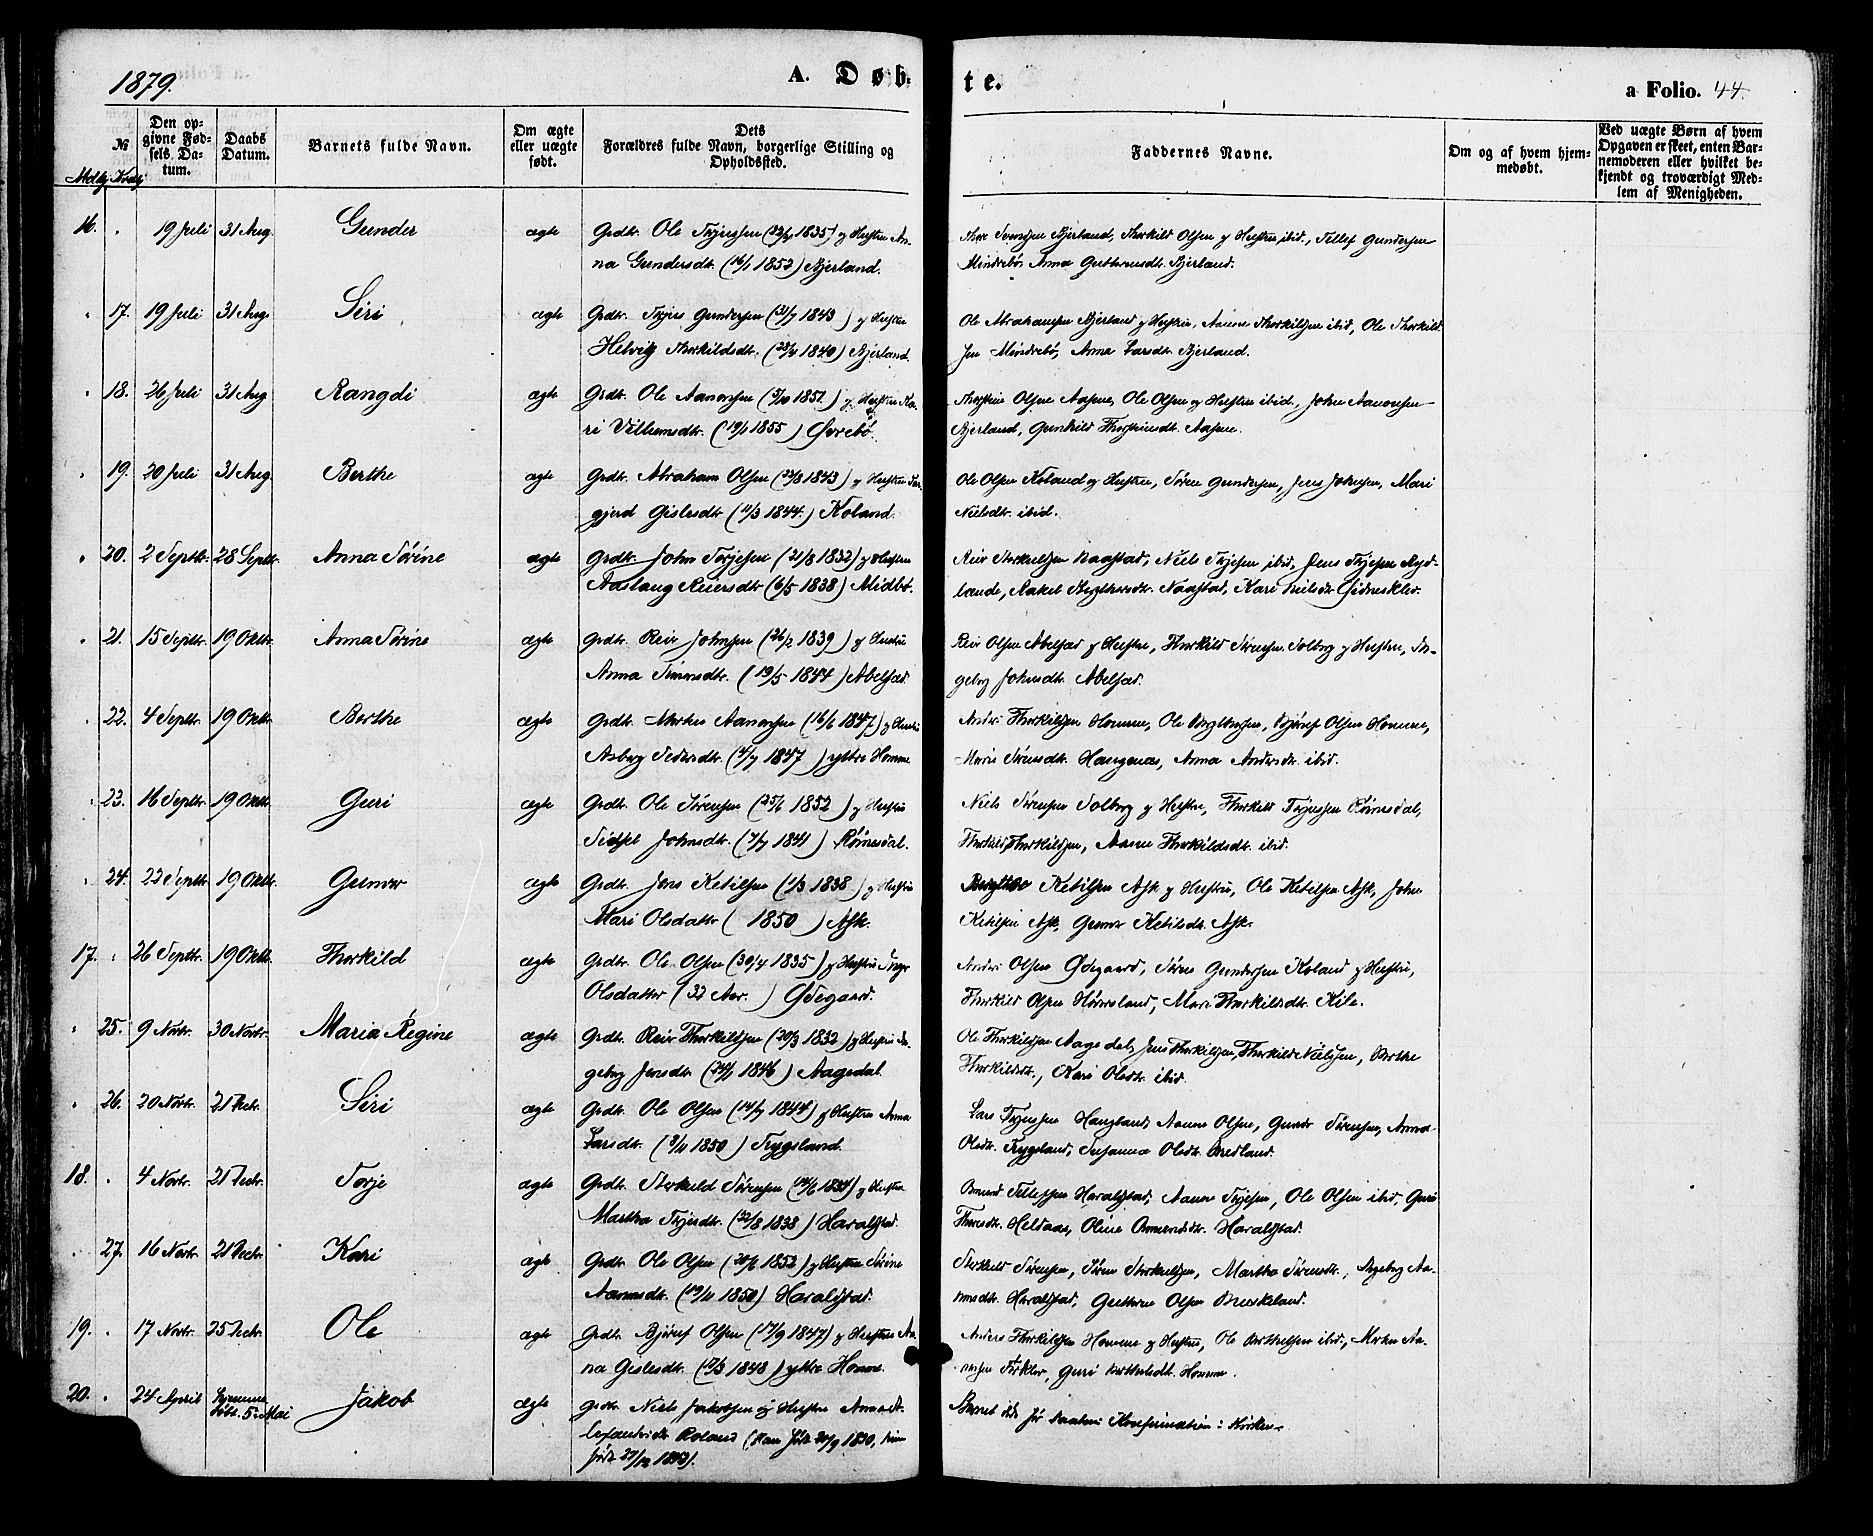 1879.
A. Døb-
te.
a Folio. 44.
№
Mdkj. Kvkj.
Den op-
givne Fød-
sels Da-
tum.
Daabs
Datum.
Barnets fulde Navn.
Om ægte
eller uægte
født.
Dets
Forældres fulde Navn, borgerlige Stilling og
Opholdssted.
Faddernes Navne.
Om og af hvem hjem-
medøbt.
Ved uægte Børn af hvem
Opgaven er skeet, enten Bar-
nemoderen eller hvilket be-
kjendt og troværdigt Med-
lem af Menigheden.
16. 19 Juli 31 Aug. Gunder ægte Grdbr. Ole Terjessen 1835) og Hustru An-
na Gundersdtr. (16/1 1852) Bjerland.
Thore Svensen Bjerland, Thorkild Olsen og Hustru ibid., Tellef Gundersen
Mindrebø, Anna Guttormsdt. Bjerland.
17. 19 Juli 31 Aug. Siri ægte Grdbr. Terjus Gundersen (31/7 1843) og Hustru
Helvig Thorkildsdt. (28/4 1840) Bjerland.
Ole Abrahamsen Bjerland og Hustru, Aanen Thorkildsen ibid, Ole Thorkild-
sen Mindrebø, Anna Larsdt. Bjerland.
18. 26 Juli 31 Aug Rangdi ægte Grdbr. Ole Aanonsen (5/10 1852) og Hustru Ka-
ri Vilhumsdtr. (19/1 1855) Øvrebø.
Thorstein Olsen Aasen, Ole Olsen og Hustru ibid., John Aanonsen
Bjerland, Gunhild Thorsteinsdt. Aasen.
19. 20 Juli 31 Aug. Berthe ægte Grdbr. Abraham Olsen 1843) og Hustru
Gislesdt (11/3 1844.) Koland.
Ole Olsen Koland og Hustru, Søren Gundersen, Jens Johnsen, Mari
Nielsdt. ibid.
20. 2 Septbr. 28 Septbr. Anna Tørine ægte Grdbr. John Terjesen (21/8 1832) og Hustru
Aaslaug Reiersdtr (6/5 1838) Midbø.
Reier Thorkildsen Naastad, Niels Terjesen ibid, Jens Terjesen Ryd-
lende, Rakel Naastad, Kari Nielsdt
21. 15 Septbr. 19 Oktbr. Anna Tørine ægte Grdbr. Reier Johnsen (26/2 1839) og Hustru
Anna (19/5 1844) Abelsæd.
Reier Olsen Abelsæd og Hustru, Thorkild Sørensen Solberg og Hustru, In-
geborg Johnsdt. Abelsæd.
22. 4 Septbr. 19 Oktbr. Berthe ægte Grdbr. Morten Aanonsen (16/6 1847) og Hustru
Asborg Pedersdtr. (4/7 1847) yttre Homme
Anders Thorkildsen Homme, Ole Bjørulf Olsen Homme,
Haugenæs, Anna Andersdt. ibid.
23. 16 Septbr. 19 Oktbr. Guri ægte Grdbr. Ole Sørensen (25/6 1852) og Hustru
Sidsel Johnsdtr. (7/7 1841) Rømesdal.
Niels Sørensen Solberg og Hustru, Thorkild Terjussen Rømesdal,
Thorkild Thorkildsen, Aasne Thorkildsdt. ibid.
24. 22 Septbr 19 Oktbr. Gunvor ægte Grdbr. Jens Ketilsen (1/3 1838) og Hustru
Mari Olsdatter ( 1850 ) Ask.
Ketilsen Ask og Hustru, Ole Ketilsen Ask, John
Ketilsen Ask, Gunvor Ketilsdt. Ask.
17. 26 Septbr. 19 Oktbr. Thorkild ægte Grdbr. Ole Olsen (30/4 1835) og Hustru Inger
Olsdatter (32 Aar. ) Ødegaard.
Anders Olsen Ødegaard, Søren Gundersen Koland og Hustru,
Thorkild Olsen Mari Thorkildsdt. Kile.
25. 9 Novbr. 30 Novbr. Maria Regine ægte Grdbr. Reier Thorkildsen (20/3 1832) og Hustru In-
geborg Jensdt. (24/1 1846) Aagedal
Ole Thorkildsen Aagedal, Jens Thorkildsen, Thorkild Nielssen, Berthe
Thorkildsdt., Kari Olsdt. ibid
26. 20 Novbr. 21 Decbr. Siri ægte Grdbr. Ole Olsen (14/7 1844) og Hustru Anna
Larsdt. (3/11 1850) Trygsland.
Lars Terjussen Haugland, Aanon Olsen, Gunder Sørensen, Anna
Olsdt. Trygsland, Susanna Olsdt.
18. 4 Novbr. 21 Decbr. Torje ægte Grdbr. Thorkild Sørensen 1834) og Hustru
Martha Terjesdt. (22/8 1838) Haraldstad.
Tellefssen Haraldstad, Aanon Terjesen, Ole Olsen ibid, Guri
Thoresdt. Heldaas, Oline Haraldstad.
27. 16 Novbr. 21 Decbr. Kari ægte Grdbr. Ole Olsen (20/6 1852) og Hustru Tørine
Aanonsdt. (19/11 1850) Haraldstad.
Thorkild Sørensen, Søren Thorkildsen, Martha Sørensdt., Ingeborg Aa-
nonsdt. Haraldstad, Guttorm Olsen
19. 17 Novbr. 25 Decbr. Ole ægte Grdbr. Bjørulf Olsen (17/9 1847) og Hustru An-
na Gislesdt. (12/3 1848) yttre Homme.
Anders Thorkildsen Homme og Hustru, Ole ibid., Morten Aa-
nonsen Guri Homme.
20. 24 April Hjemme
døbt. 5 Mai Jakob ægte Grdbr. Niels Jakobsen og Hustru Anna A-
lexandersdt. Roland (Han født 20/9 1830, hun
født 27/12 1843).
Barnet døde før Daabens Konfirmation i Kirken.